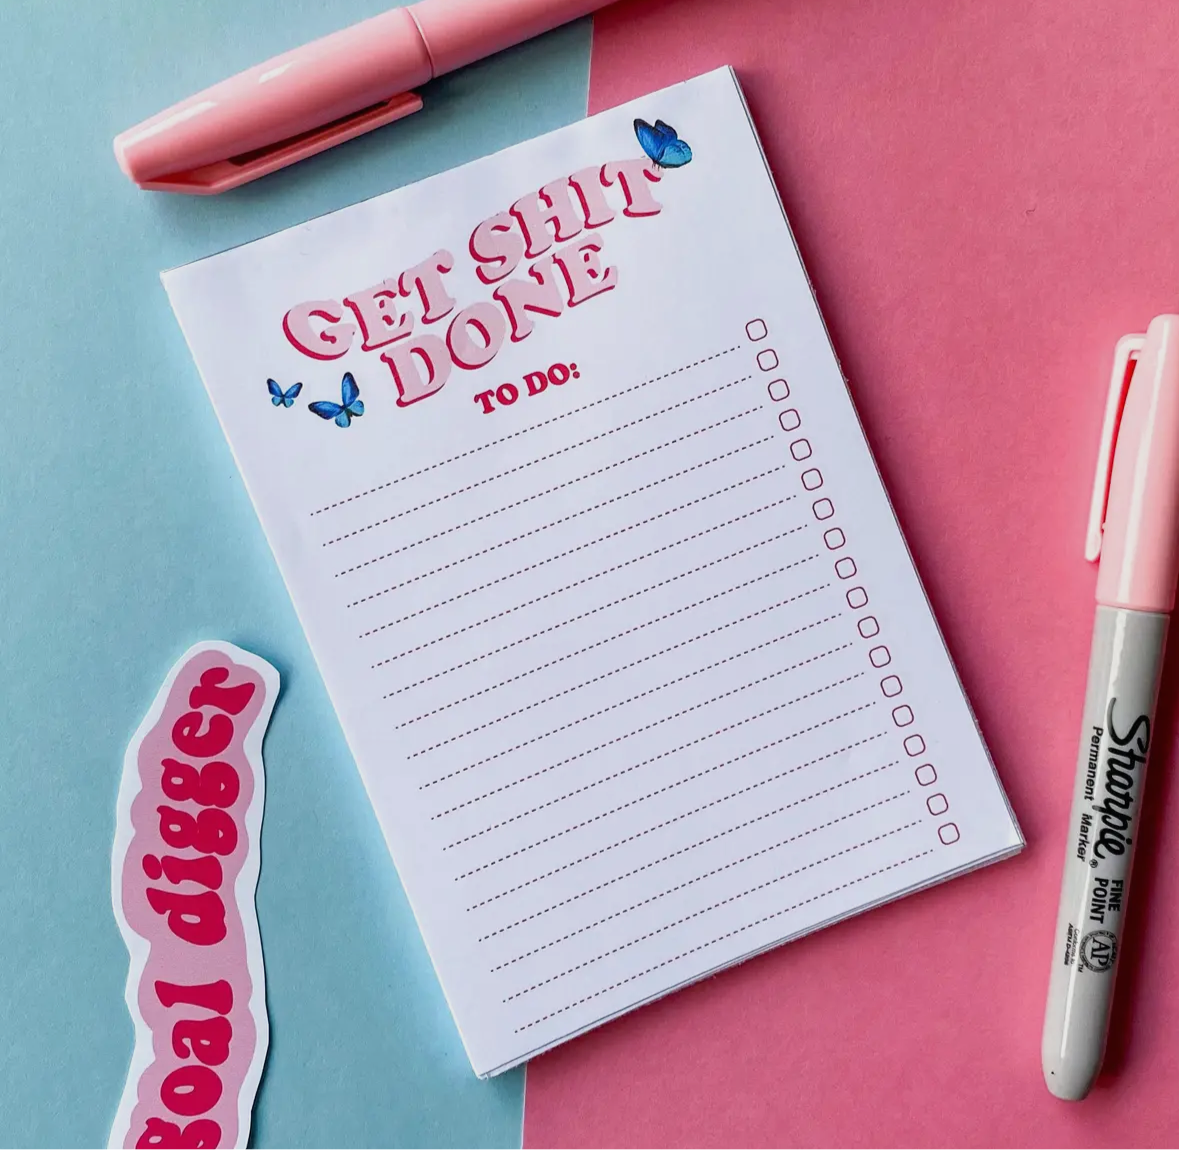 GET SHIT
DONE
TO DO:
goal digger
Sharpie
Permanent Marker
®
FINE
POINT
AP